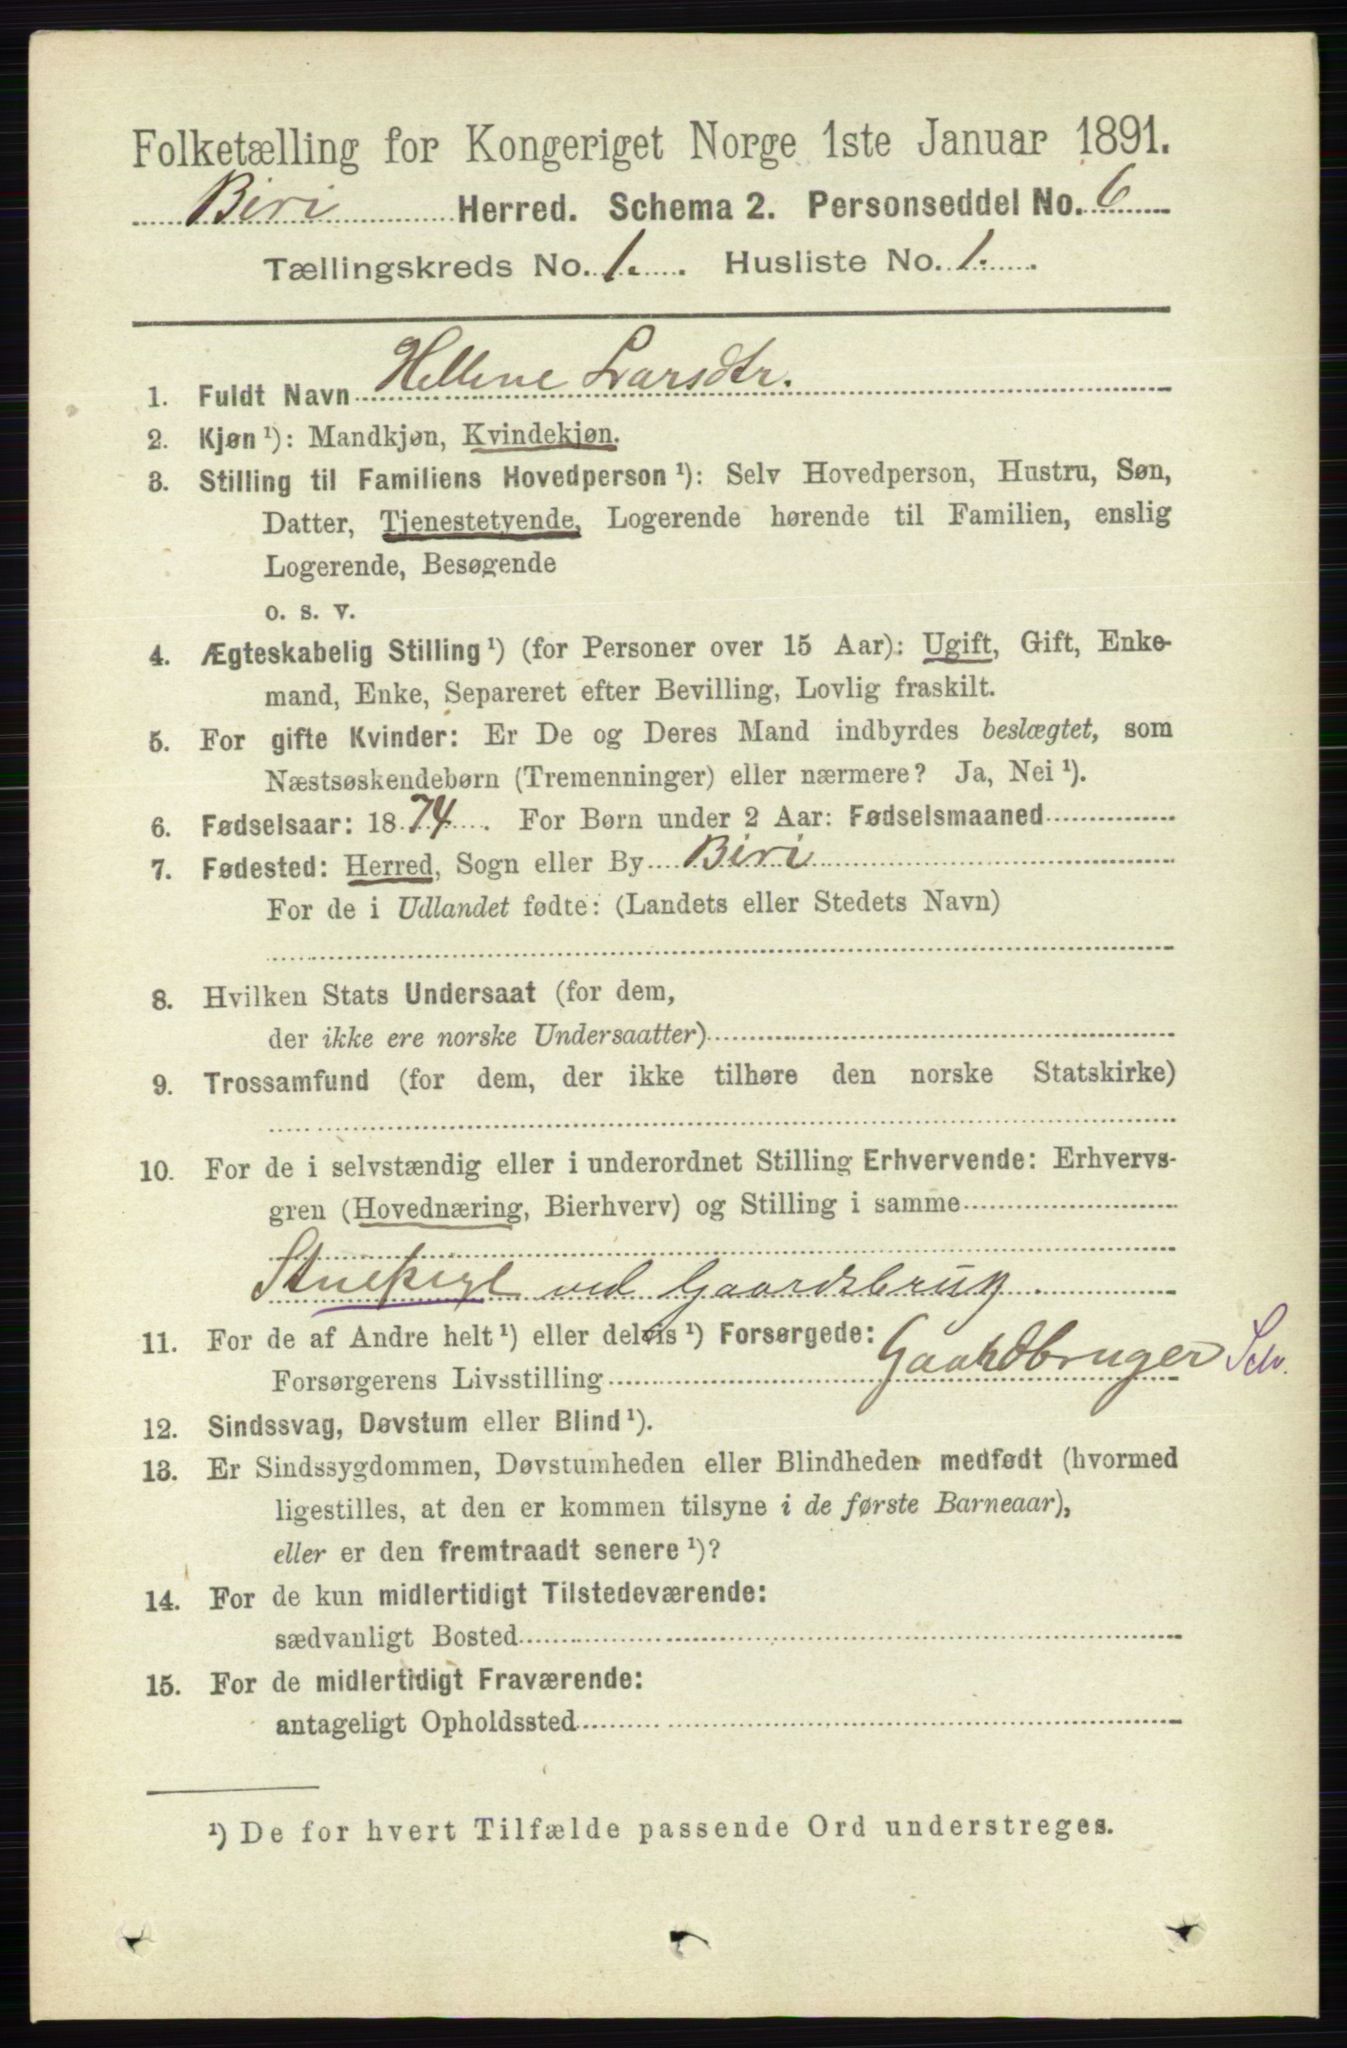 Folketælling for Kongeriget Norge 1ste Januar 1891.
Biri Herred. Schema 2. Personseddel No. 6
Tællingskreds No. 1. Husliste No. 1.
1. Fuldt Navn Hellene Larsdtr.
2. Kjøn¹): Mandkjøn, Kvindekjøn.
3. Stilling til Familiens Hovedperson¹): Selv Hovedperson, Hustru, Søn,
Datter, Tjenestetyende, Logerende hørende til Familien, enslig
Logerende, Besøgende
o. s. v.
4. Ægteskabelig Stilling¹) (for Personer over 15 Aar): Ugift, Gift, Enke-
mand, Enke, Separeret efter Bevilling, Lovlig fraskilt.
5. For gifte Kvinder: Er De og Deres Mand indbyrdes beslægtet, som
Næstsøskendebørn (Tremenninger) eller nærmere? Ja, Nei¹).
6. Fødselsaar: 1874. For Børn under 2 Aar: Fødselsmaaned
7. Fødested: Herred, Sogn eller By Biri
For de i Udlandet fødte: (Landets eller Stedets Navn)
8. Hvilken Stats Undersaat (for dem,
der ikke ere norske Undersaatter)
9. Trossamfund (for dem, der ikke tilhøre den norske Statskirke)
10. For de i selvstændig eller i underordnet Stilling Erhvervende: Erhvervs-
gren (Hovednæring, Bierhverv) og Stilling i samme
Stuepige ved Gaardsbrug.
11. For de af Andre helt¹) eller delvis¹) Forsørgede:
Forsørgerens Livsstilling Gaardbruger Selv.
12. Sindssvag, Døvstum eller Blind¹).
13. Er Sindssygdommen, Døvstumheden eller Blindheden medfødt (hvormed
ligestilles, at den er kommen tilsyne i de første Barneaar),
eller er den fremtraadt senere¹)?
14. For de kun midlertidigt Tilstedeværende:
sædvanligt Bosted
15. For de midlertidigt Fraværende:
antageligt Opholdssted
¹) De for hvert Tilfælde passende Ord understreges.